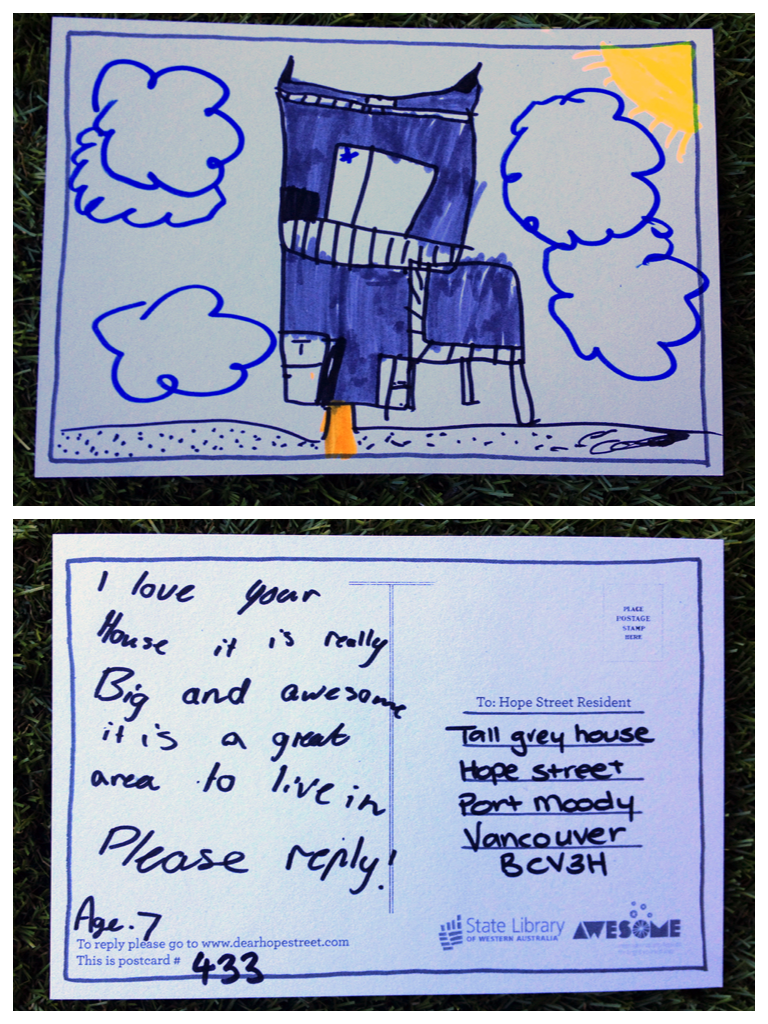 I love your
House it is really
Big and awesome
it is a great
area to live in
Please reply!
Age. 7
To reply please go to www.dearhopestreet.com
This is postcard # 433
PLACE
POSTAGE
STAMP
HERE
To: Hope Street Resident
Tall grey house
Hope street
Port moody
Vancouver
BCV3H
State Library
OF WESTERN AUSTRALIA
AWESOME